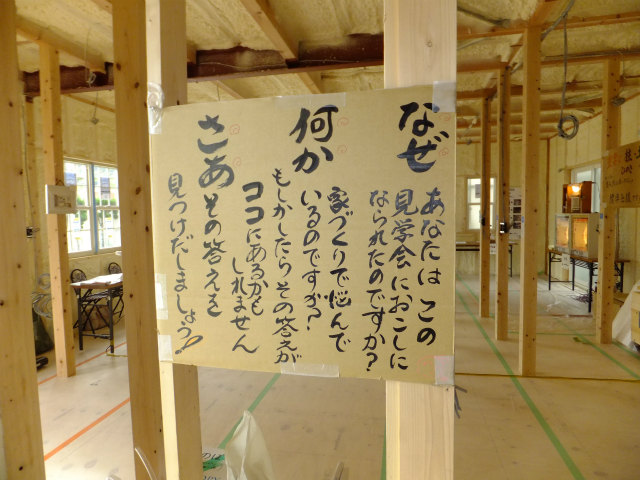 なぜ あなたは この
見学会におこしに
なられたのですか?
何か 家づくりで悩んで
いるのですか?
もしかしたらその答えが
ココにあるかも
しれません
さあその答えを
見つけだしましょう!